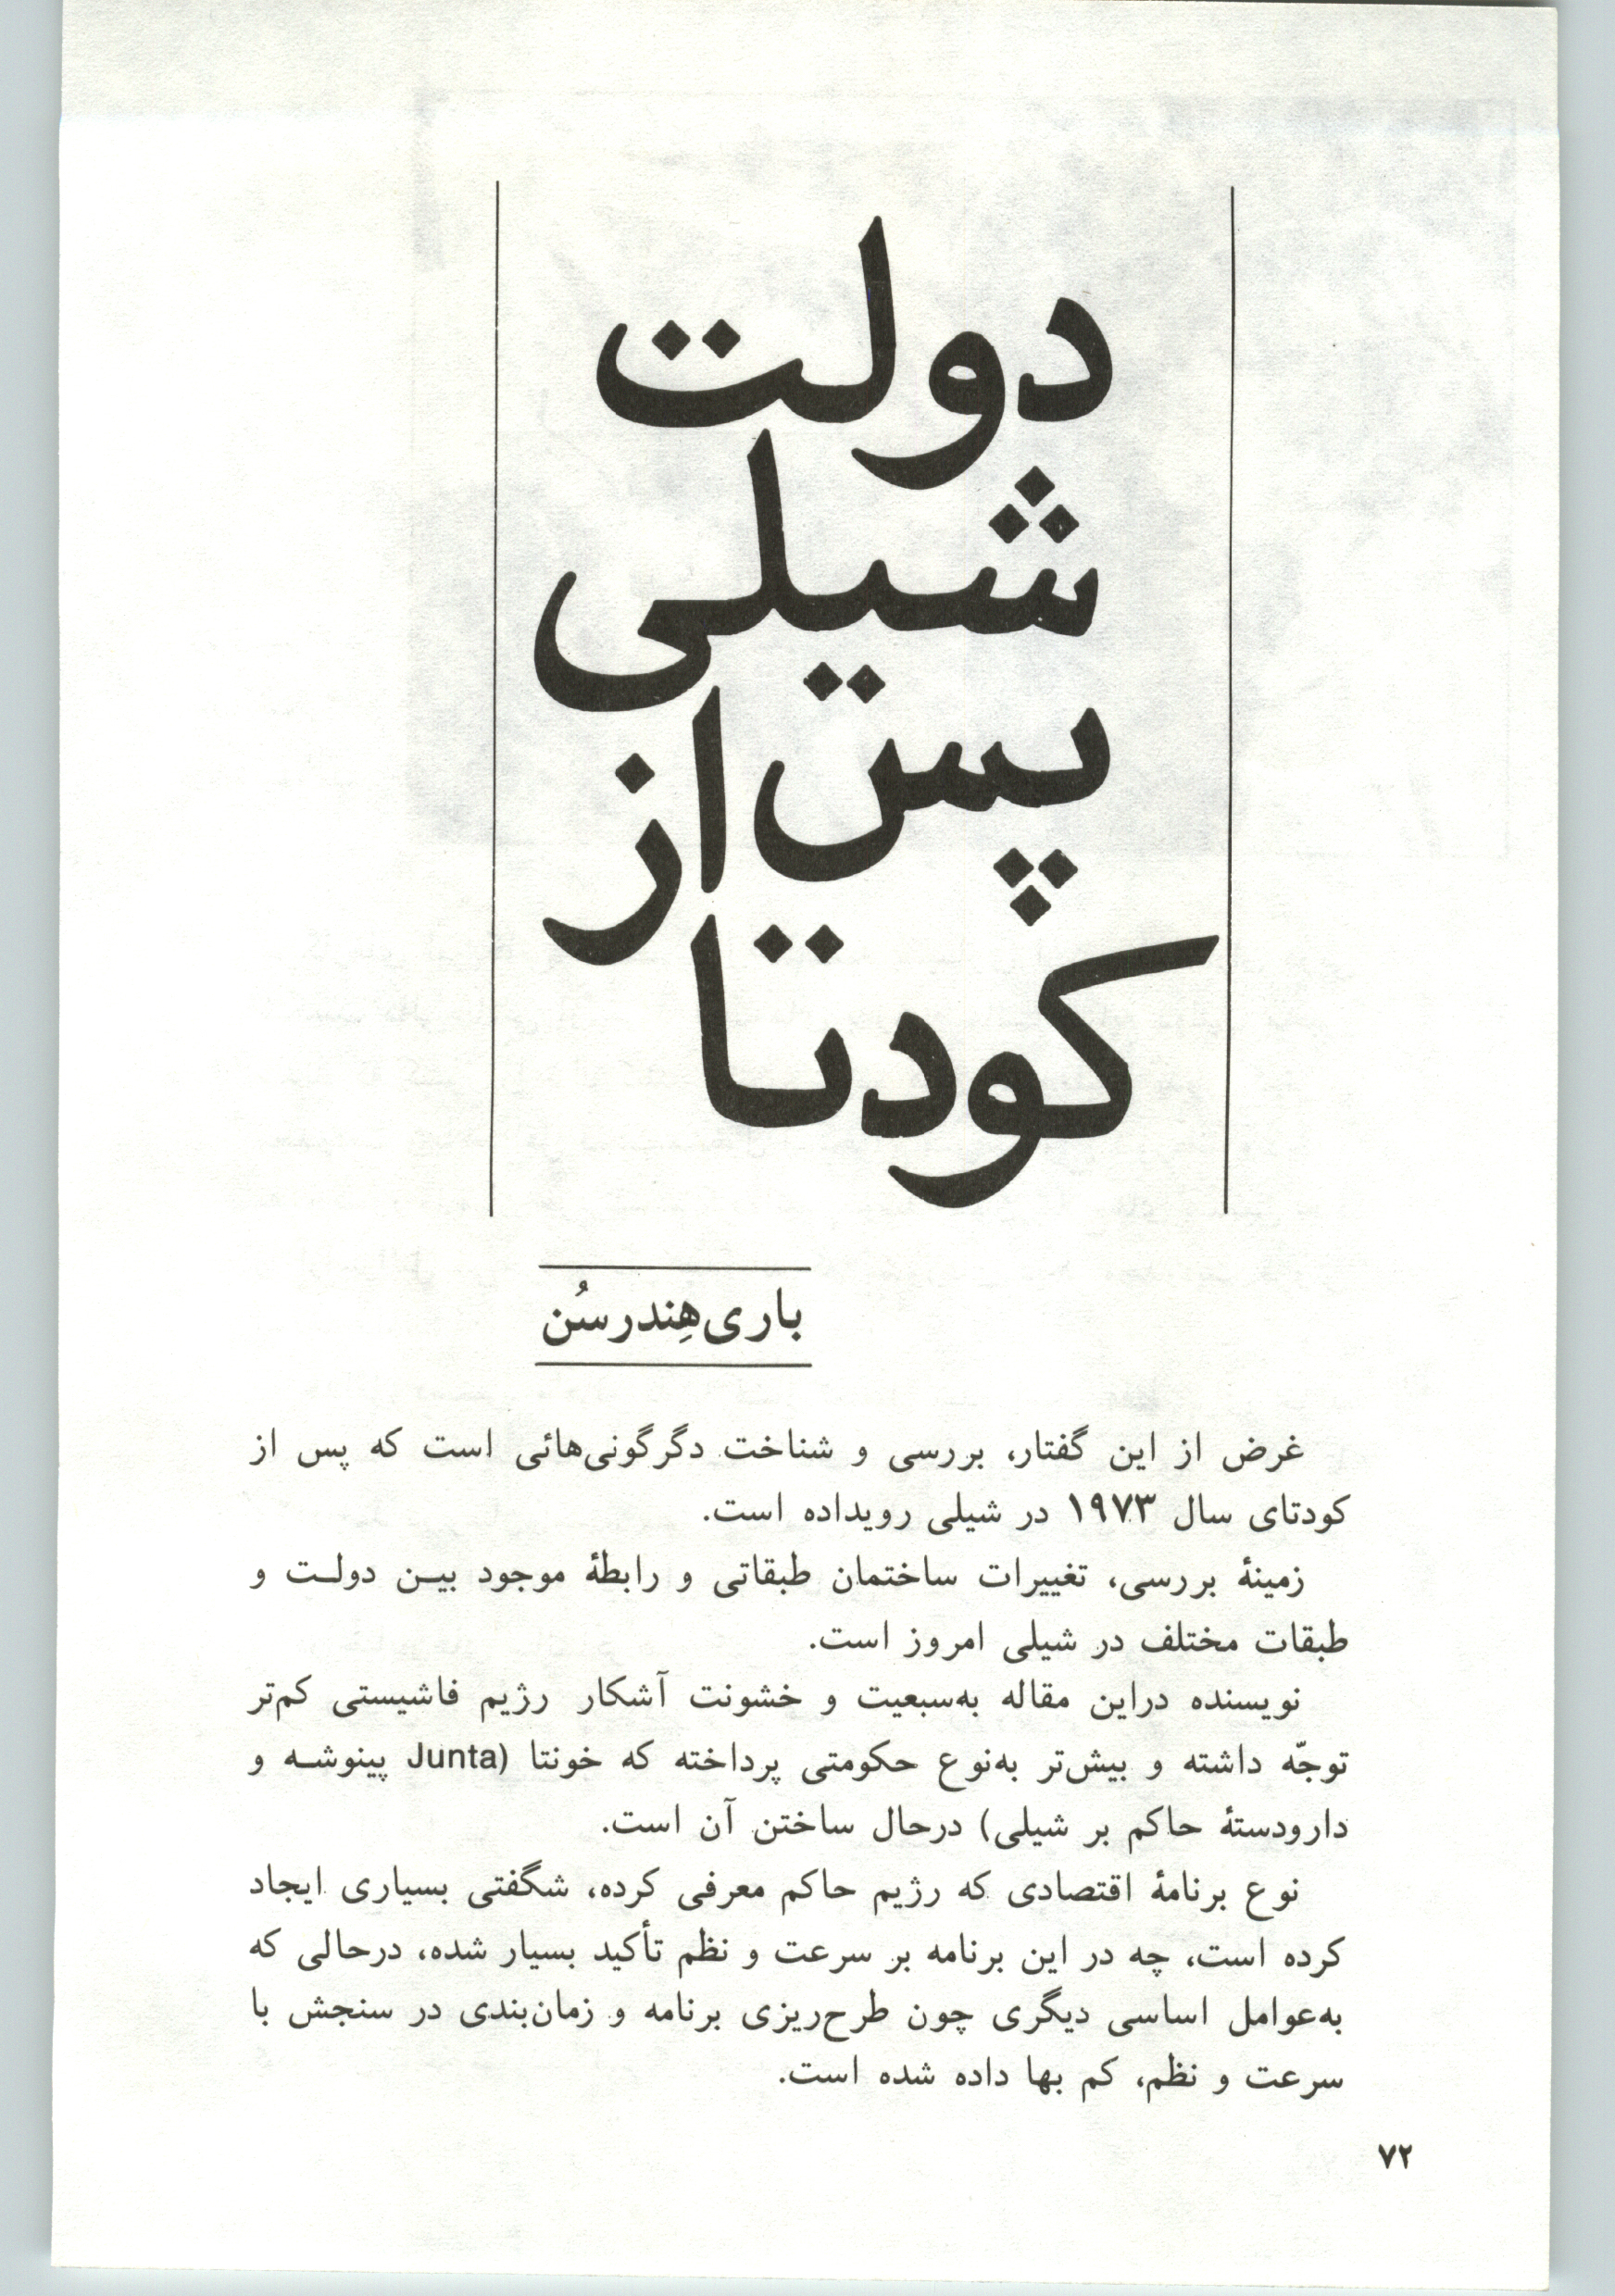 دولت
شیلی
پس از
کودتا
باری هِندرسُن
غرض از این گفتار، بررسی و شناخت دگرگونی‌هائی است که پس از
کودتای سال ۱۹۷۳ در شیلی رویداده است.
زمینهٔ بررسی، تغییرات ساختمان طبقاتی و رابطهٔ موجود بیـن دولـت و
طبقات مختلف در شیلی امروز است.
نویسنده دراین مقاله به‌سبعیت و خشونت آشکار رژیم فاشیستی کم‌تر
توجّه داشته و بیش‌تر به‌نوع حکومتی پرداخته که خونتا (Junta پینوشـه و
دارودستهٔ حاکم بر شیلی) درحال ساختن آن است.
نوع برنامهٔ اقتصادی که رژیم حاکم معرفی کرده، شگفتی بسیاری ایجاد
کرده است، چه در این برنامه بر سرعت و نظم تأکید بسیار شده، درحالی که
به‌عوامل اساسی دیگری چون طرح‌ریزی برنامه و زمان‌بندی در سنجش با
سرعت و نظم، کم بها داده شده است.
۷۲